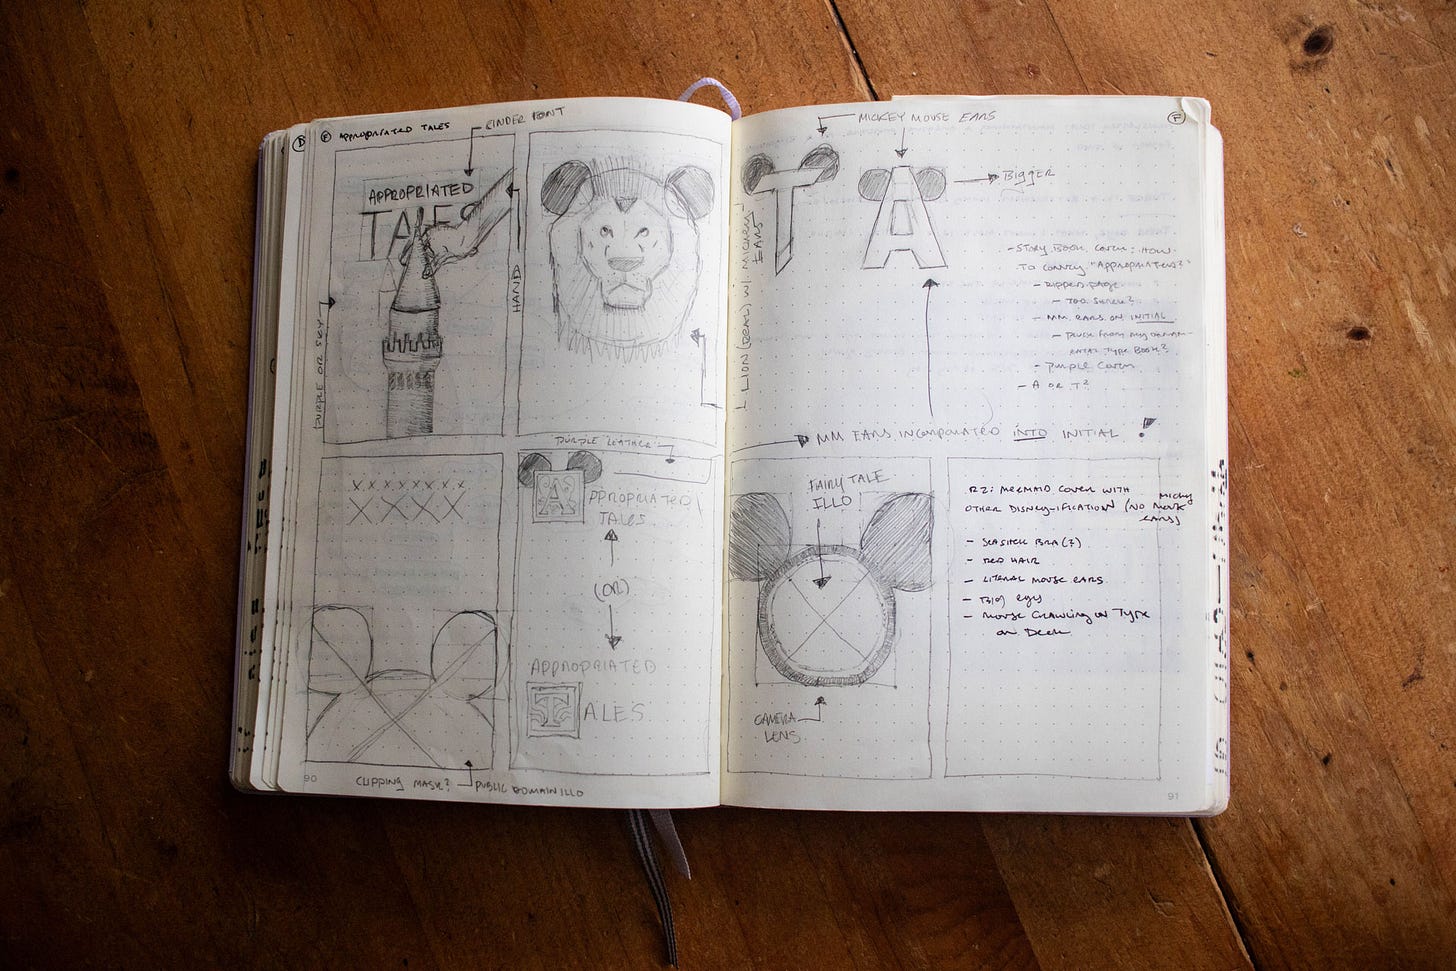 D
F APPROPRIATED TALES
CINDER FONT
APPROPRIATED
TALES
HAND
PURPLE OR SKY
LION (REAL) W/ MICKEY
EARS
PURPLE "LEATHER"
APPROPRIATED
TALES
(OR)
APPROPRIATED
TALES
X X X X X X X X
X X X X
90
CLIPPING MASK?
PUBLIC DOMAIN ILLO
MICKEY MOUSE EARS
F
T
A
BIGGER
- STORY BOOK COVER: HOW
TO CONVEY "APPROPRIATED?"
- RIPPED PAGE
- TOO SHREK?
- MM EARS ON INITIAL
- FROM MY
TYPE BOOK?
- PURPLE COVER
- A OR T?
MM EARS INCORPORATED INTO INITIAL !
FAIRY TALE
ILLO
CAMERA
LENS
R2: MERMAID COVER WITH
OTHER DISNEY-IFICATION (NO MICKEY MOUSE
EARS)
- SEASHELL BRA (?)
- RED HAIR
- LITERAL MOUSE EARS
- BIG EYES
- MOUSE CRAWLING ON TYPE
OR DECK
91